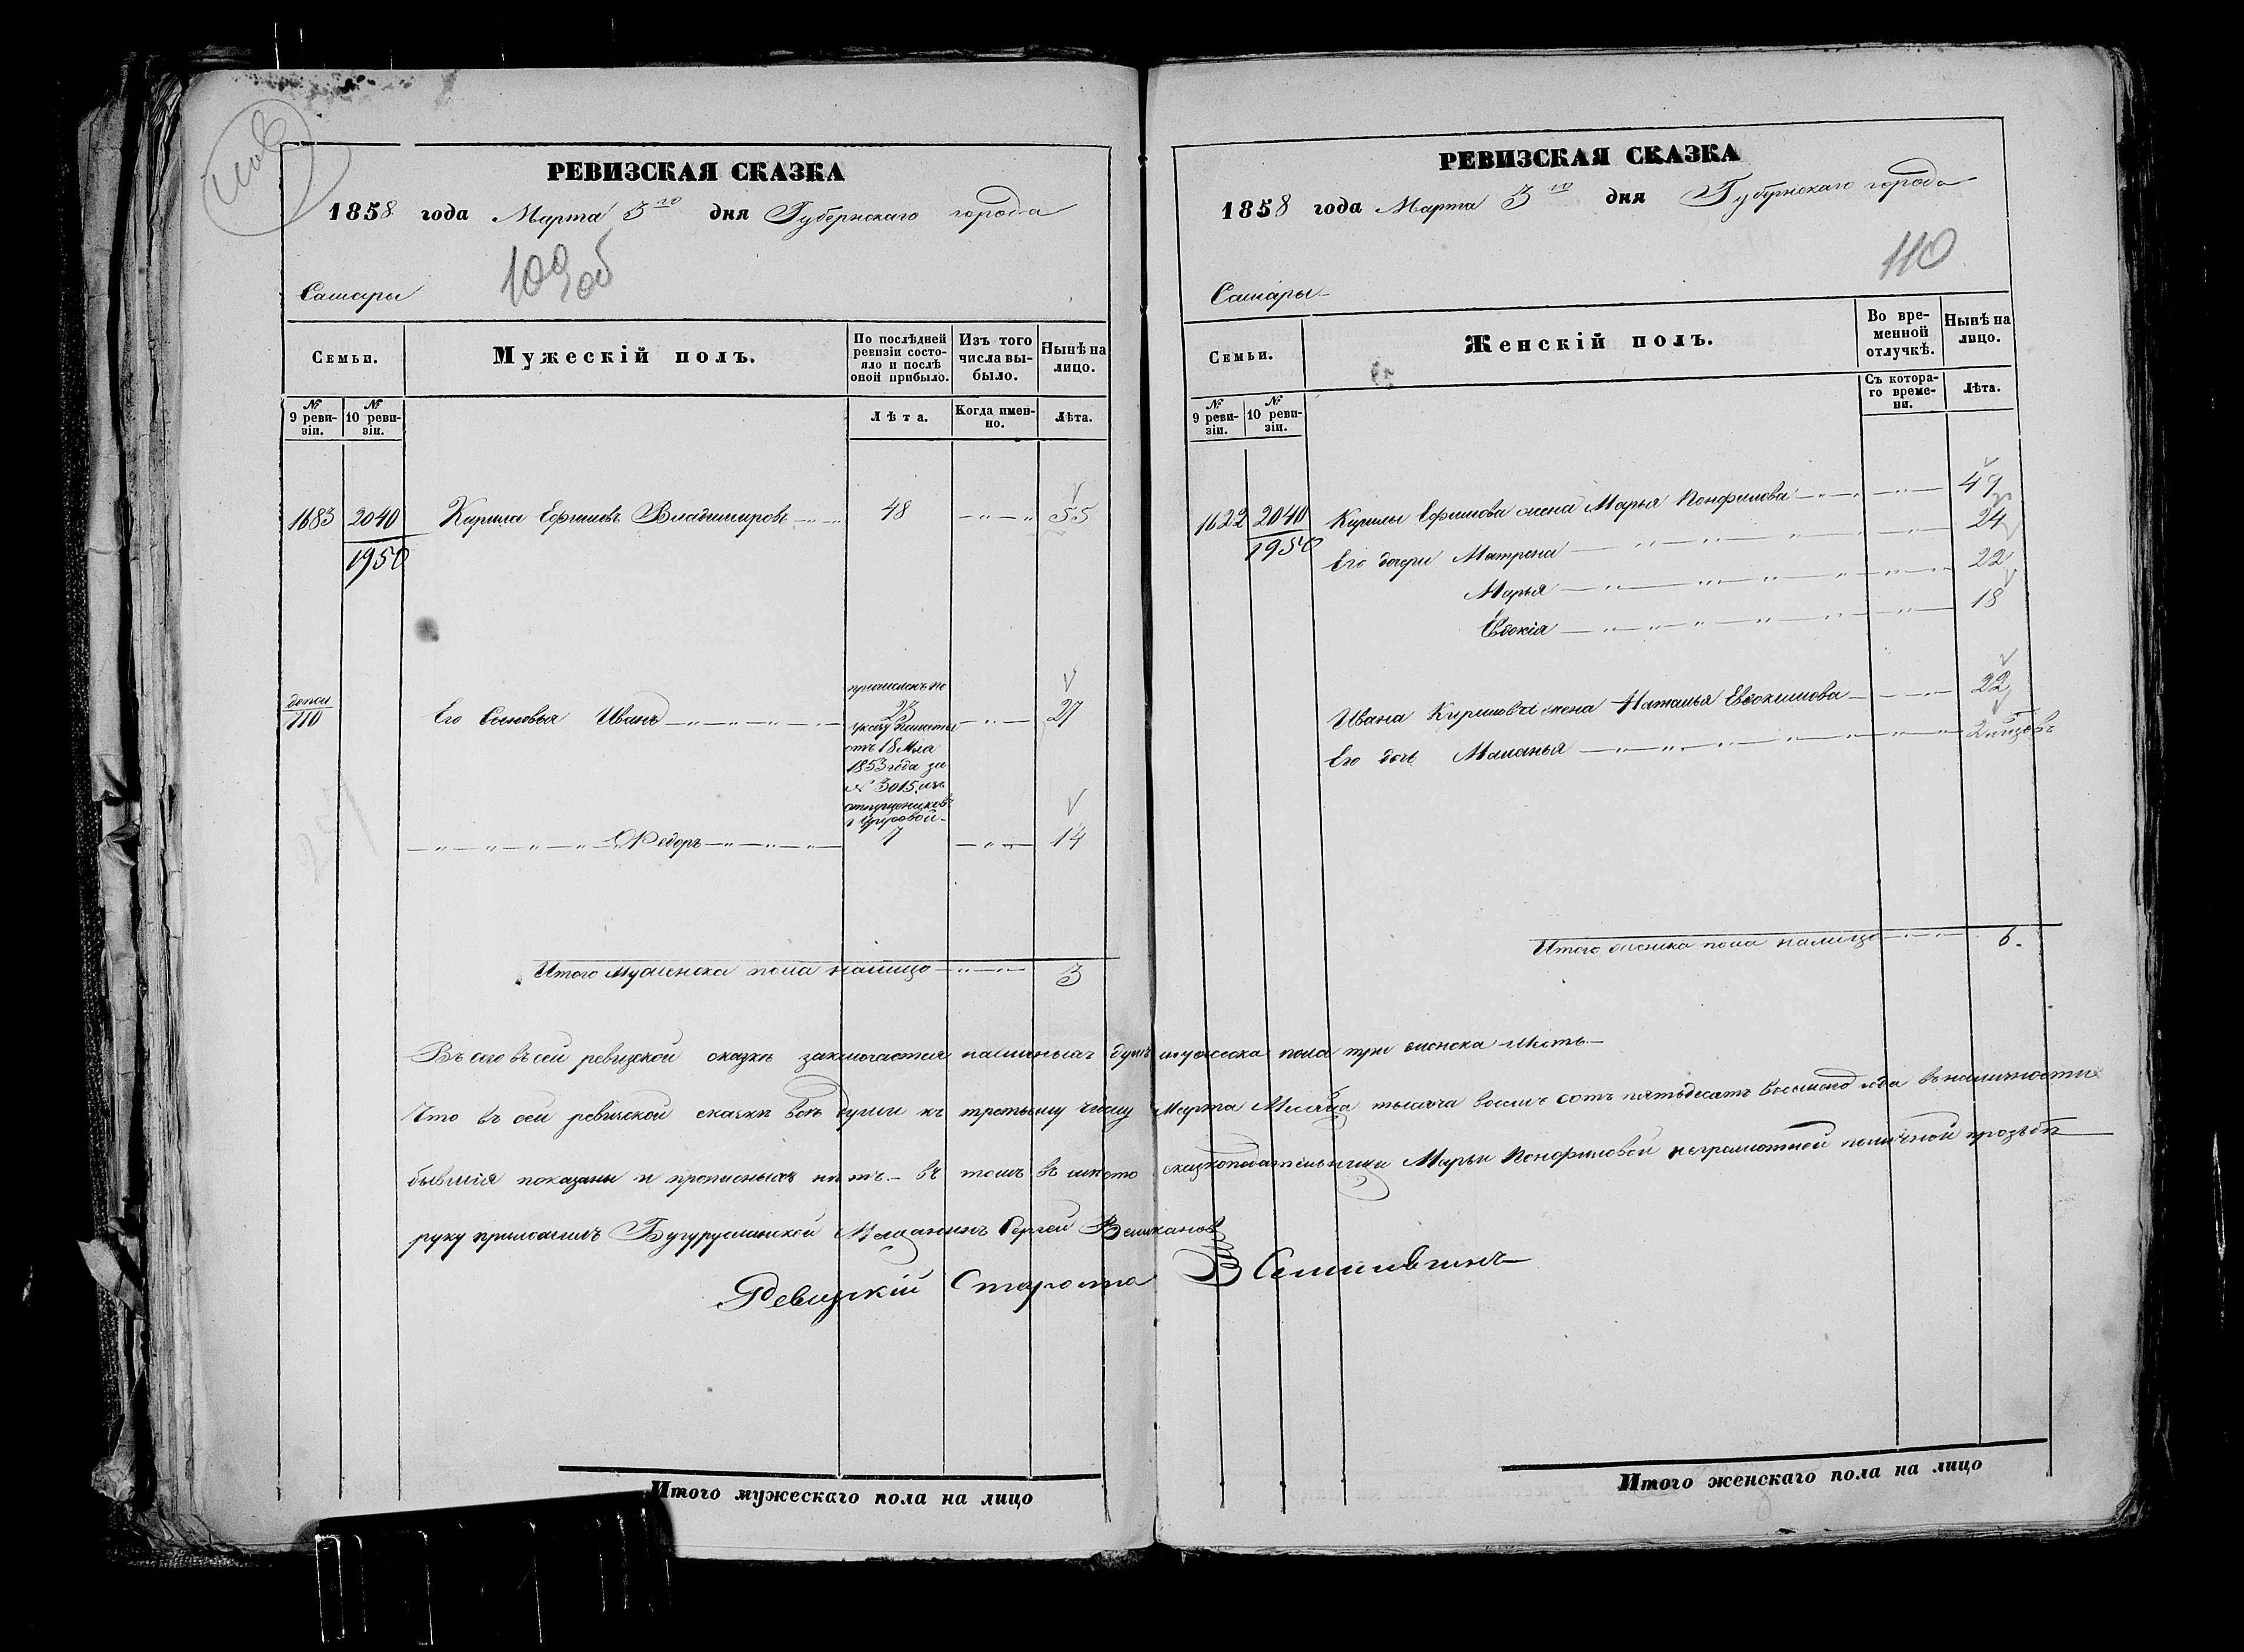 РЕВИЗСКАЯ СКАЗКА
1858 года Марта 3го дня Губернскаго города
109 об
Самары
Семьи.
Мужескій полъ.
По послѣдней ревизіи состояло и послѣ оной прибыло.
Изъ того числа выбыло.
Нынѣ на лицо.
№ 9 ревизіи.
№ 10 ревизіи.
Лѣта.
Когда именно.
Лѣта.
1683 2040 Кирила Ефимовъ Владимировъ 48 55
1950
допол 110 Его Сыновья Иванъ 23 27
причисленъ по
указу Палаты
отъ 18 Мая
1853 года за
№ 3015 изъ
отпущениковъ
Федоръ 7 14
Итого мужеска пола налицо 3
РЕВИЗСКАЯ СКАЗКА
1858 года Марта 3го дня Губернскаго города
110
Самары
Семьи.
Женскій полъ.
Во временной отлучкѣ.
Нынѣ на лицо.
№ 9 ревизіи.
№ 10 ревизіи.
Съ котораго времени.
Лѣта.
1622 2040 Кирилы Ефимова жена Марья Понфилова 49
1950
Его дочери Матрена 24
Марья 22
Евдокія 18
Ивана Кирилова жена Наталья Евдокимова 22
Его дочь Маланья
Итого женска пола налицо 6.
Всего въ сей ревизской сказке заключается наличныхъ душъ мужеска пола три женска шесть
Что въ сей ревизской сказке все души къ третьему числу Марта Месяца тысяча восемь сотъ пятьдесятъ восьмаго года въ наличности
бывшія показаны и прописныхъ нетъ. въ томъ въ место сказкоподательницы Марьи Понфиловой неграмотной по личной прозьбе
руку приложилъ Бугурусланской Мещанинъ Сергей Великановъ
Ревизкій Староста В
Итого мужескаго пола на лицо
Итого женскаго пола на лицо